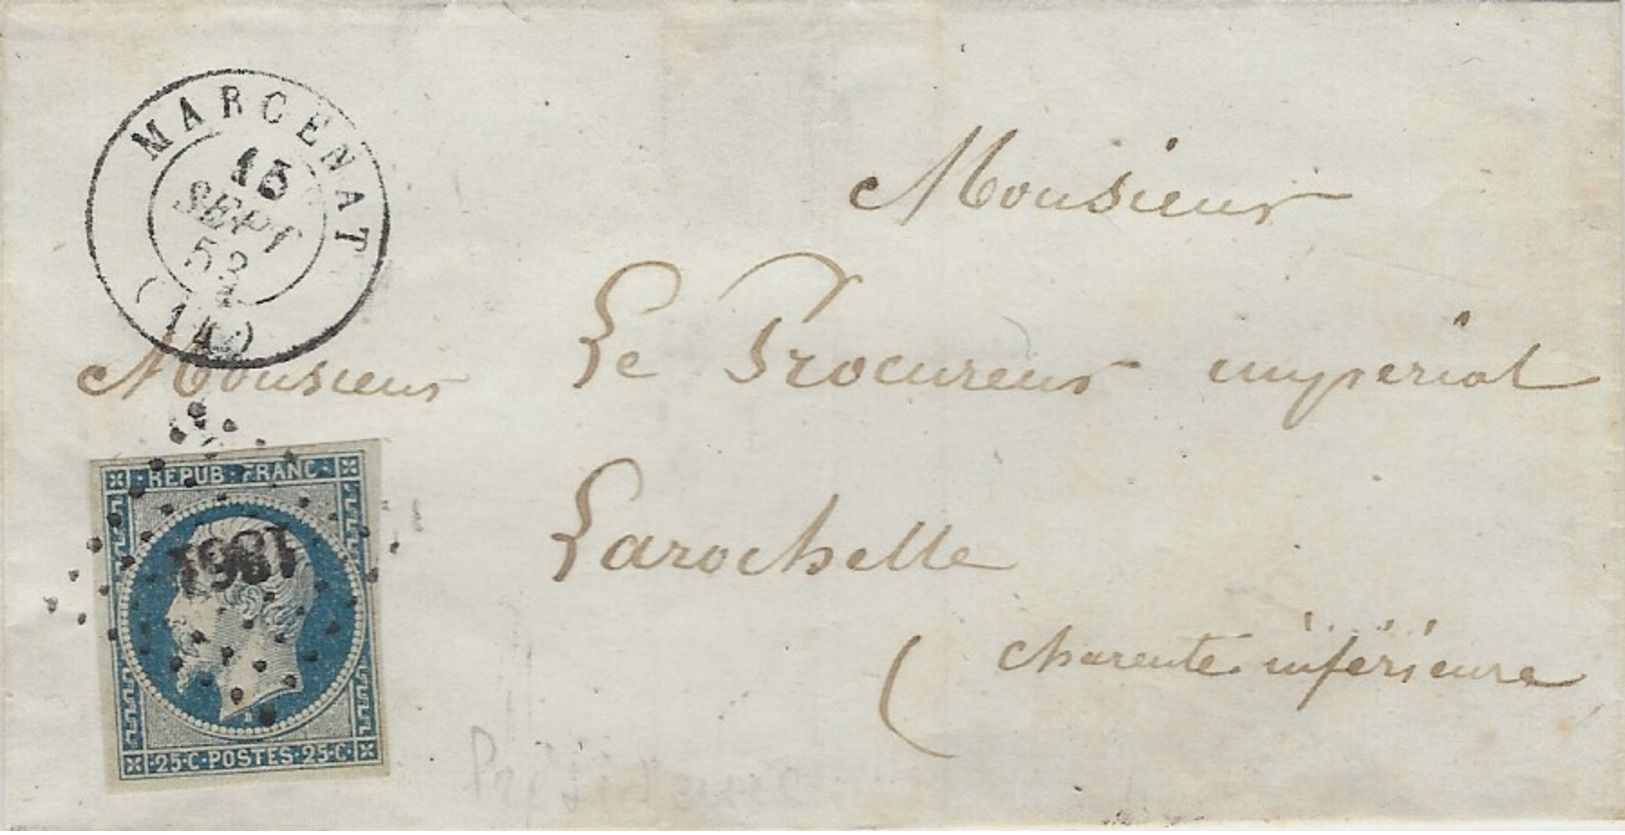 MARCENAT
15
SEPT
53
(14)
Monsieur
Monsieur
Le Procureur impérial
Larochelle
( charente inférieure
REPUB·FRANC·
·25·C·POSTES·25·C·